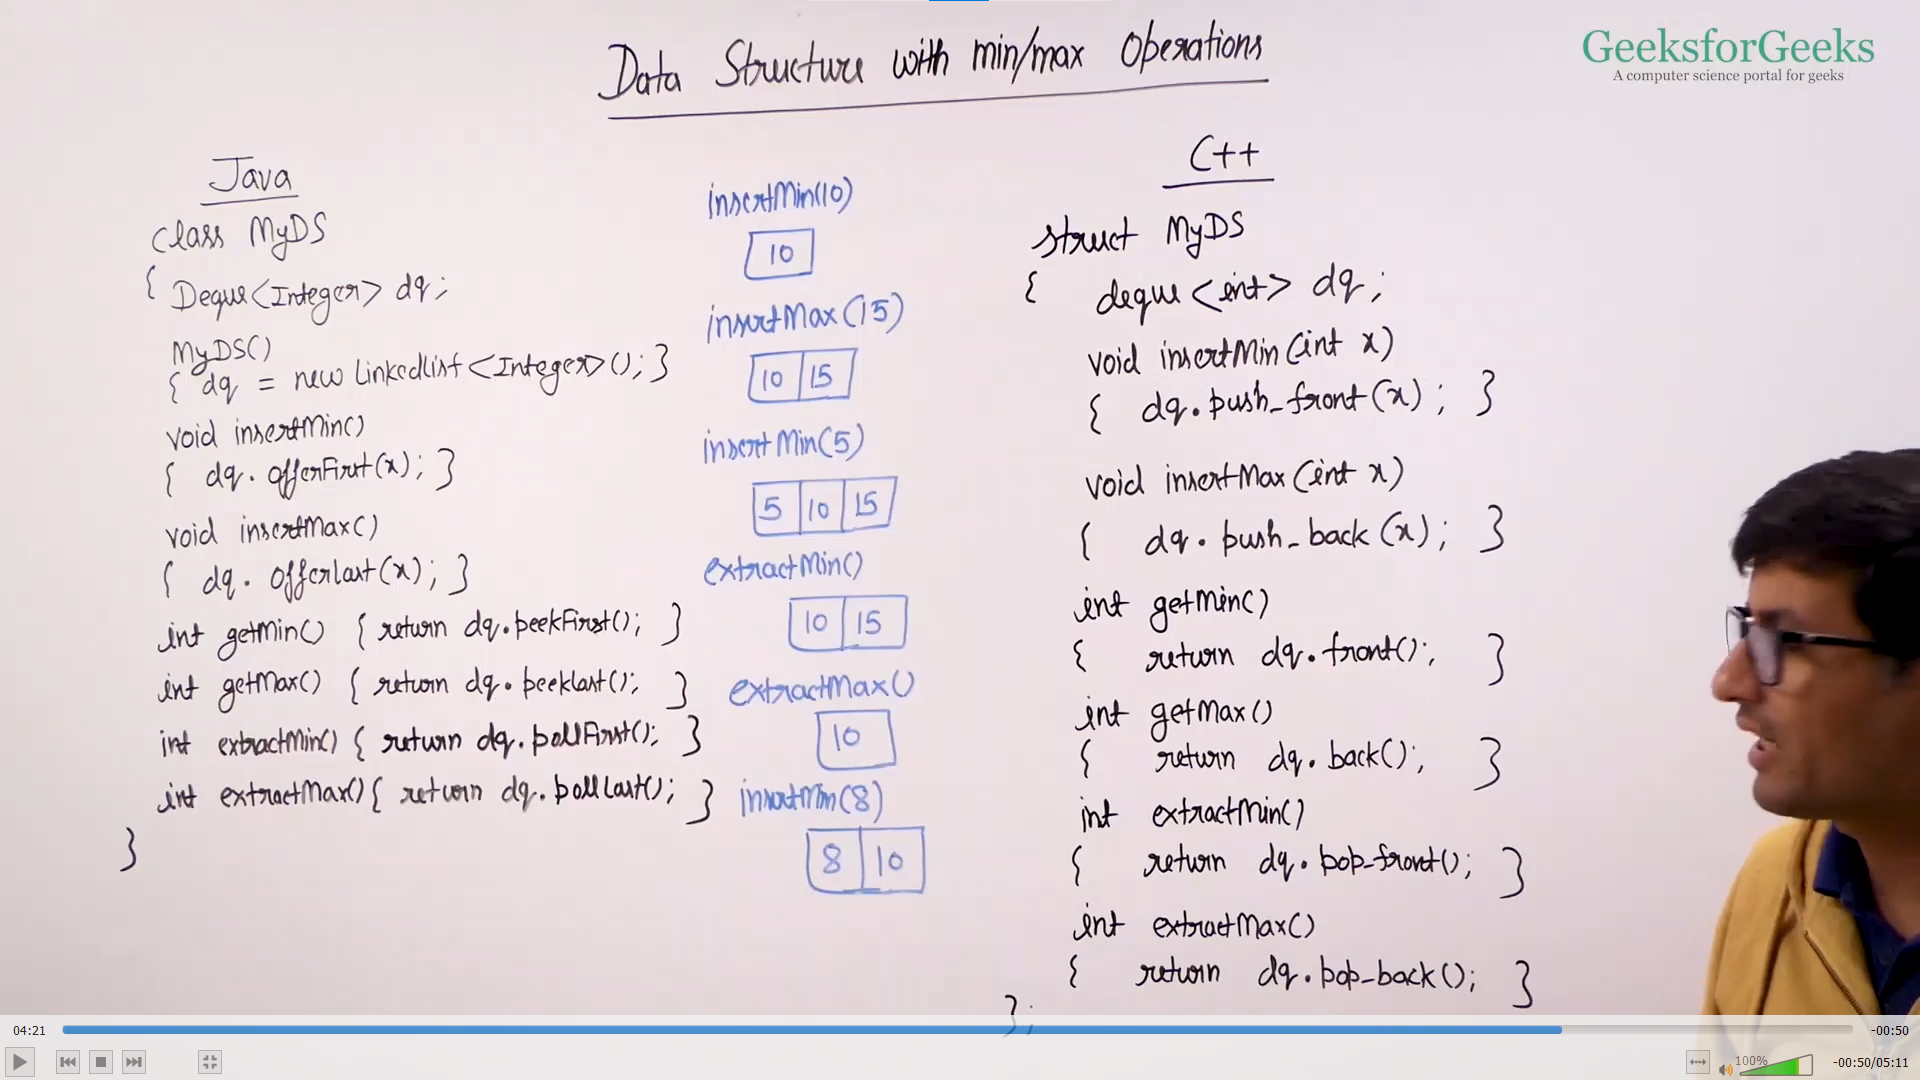 Data Structure with min/max Operations
GeeksforGeeks
A computer science portal for geeks
Java
class MyDS
{ Deque<Integer> dq;
MyDS()
{ dq = new LinkedList<Integer>(); }
void insertMin()
{ dq. offerFirst(x); }
void insertMax()
{ dq. offerLast(x); }
int getMin() { return dq.peekFirst(); }
int getMax() { return dq.peekLast(); }
int extractMin() { return dq.pollFirst(); }
int extractMax() { return dq.pollLast(); }
}
insertMin(10)
10
insertMax(15)
10 15
insertMin(5)
5 10 15
extractMin()
10 15
extractMax()
10
insertMin(8)
8 10
C++
struct MyDS
{ deque<int> dq;
void insertMin(int x)
{ dq.push_front(x); }
void insertMax(int x)
{ dq.push_back(x); }
int getMin()
{ return dq.front(); }
int getMax()
{ return dq.back(); }
int extractMin()
{ return dq.pop_front(); }
int extractMax()
{ return dq.pop_back(); }
};
04:21
-00:50
100%
-00:50/05:11